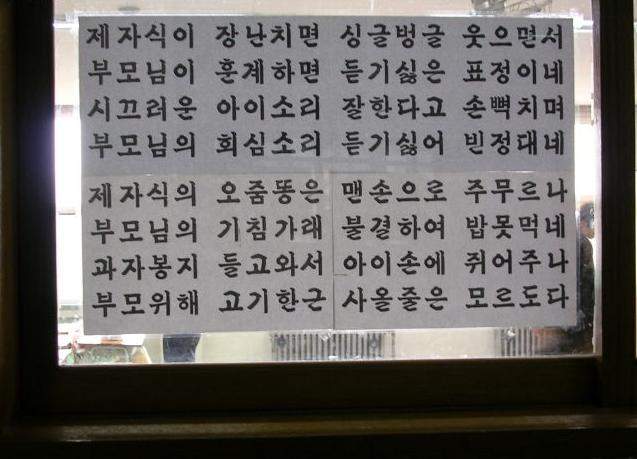 제자식이 장난치면 싱글벙글 웃으면서
부모님이 훈계하면 듣기싫은 표정이네
시끄러운 아이소리 잘한다고 손뼉치며
부모님의 회심소리 듣기싫어 빈정대네
제자식의 오줌똥은 맨손으로 주무르나
부모님의 기침가래 불결하여 밥못먹네
과자봉지 들고와서 아이손에 쥐어주나
부모위해 고기한근 사올줄은 모르도다